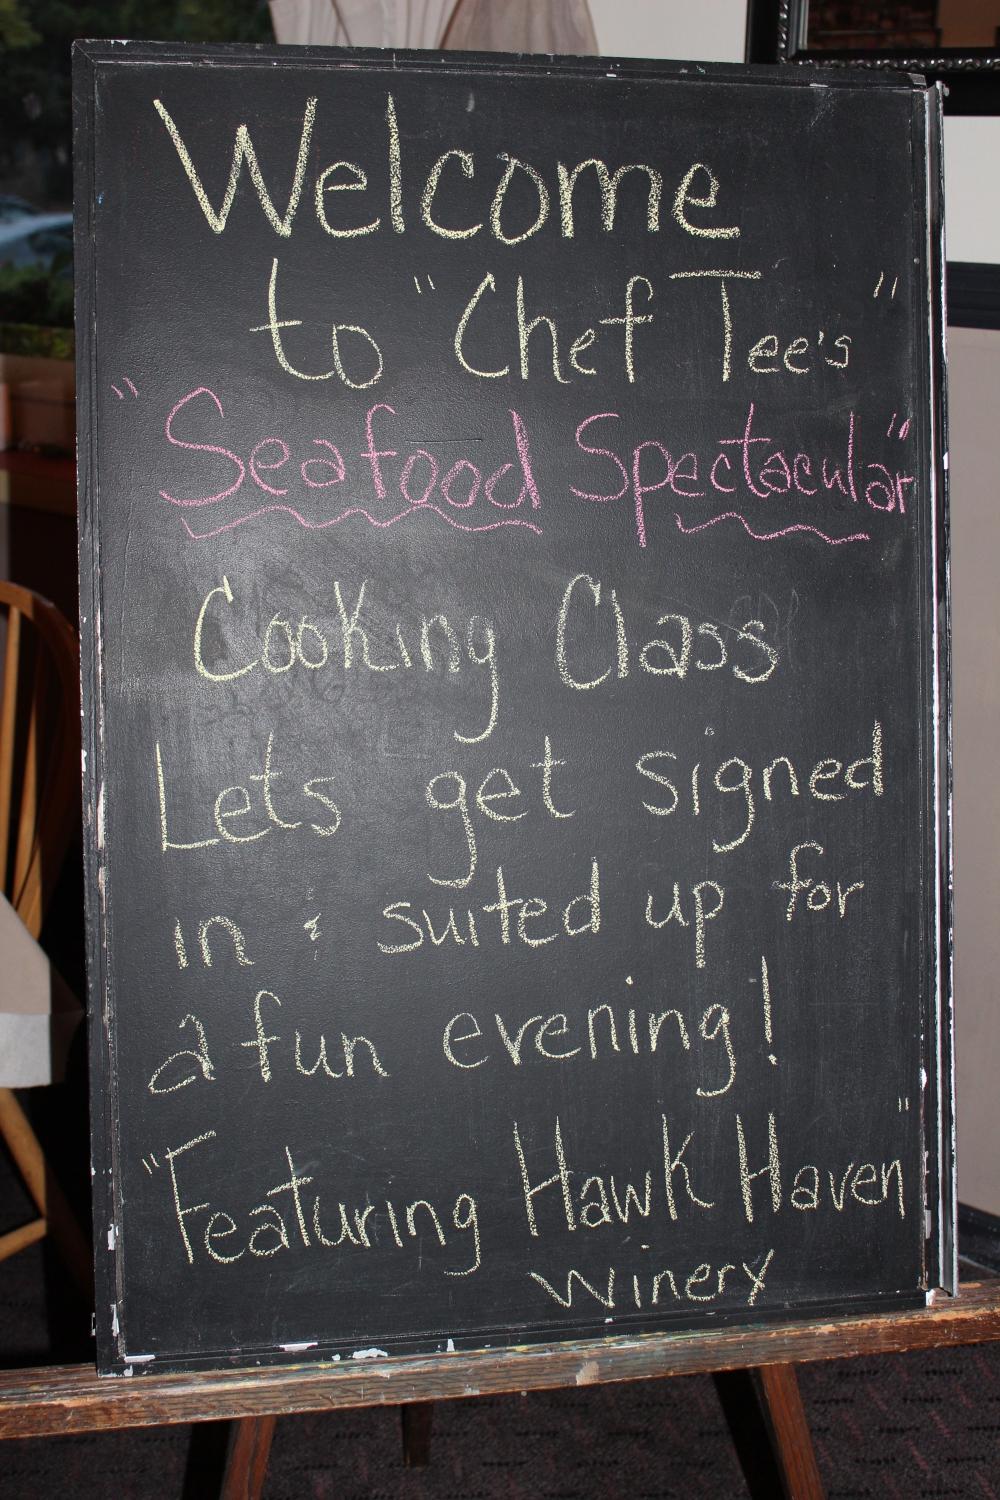 Welcome
to "Chef Tee's"
"Seafood Spectacular"
Cooking Class
Lets get signed
in & suited up for
a fun evening!
"Featuring Hawk Haven"
Winery